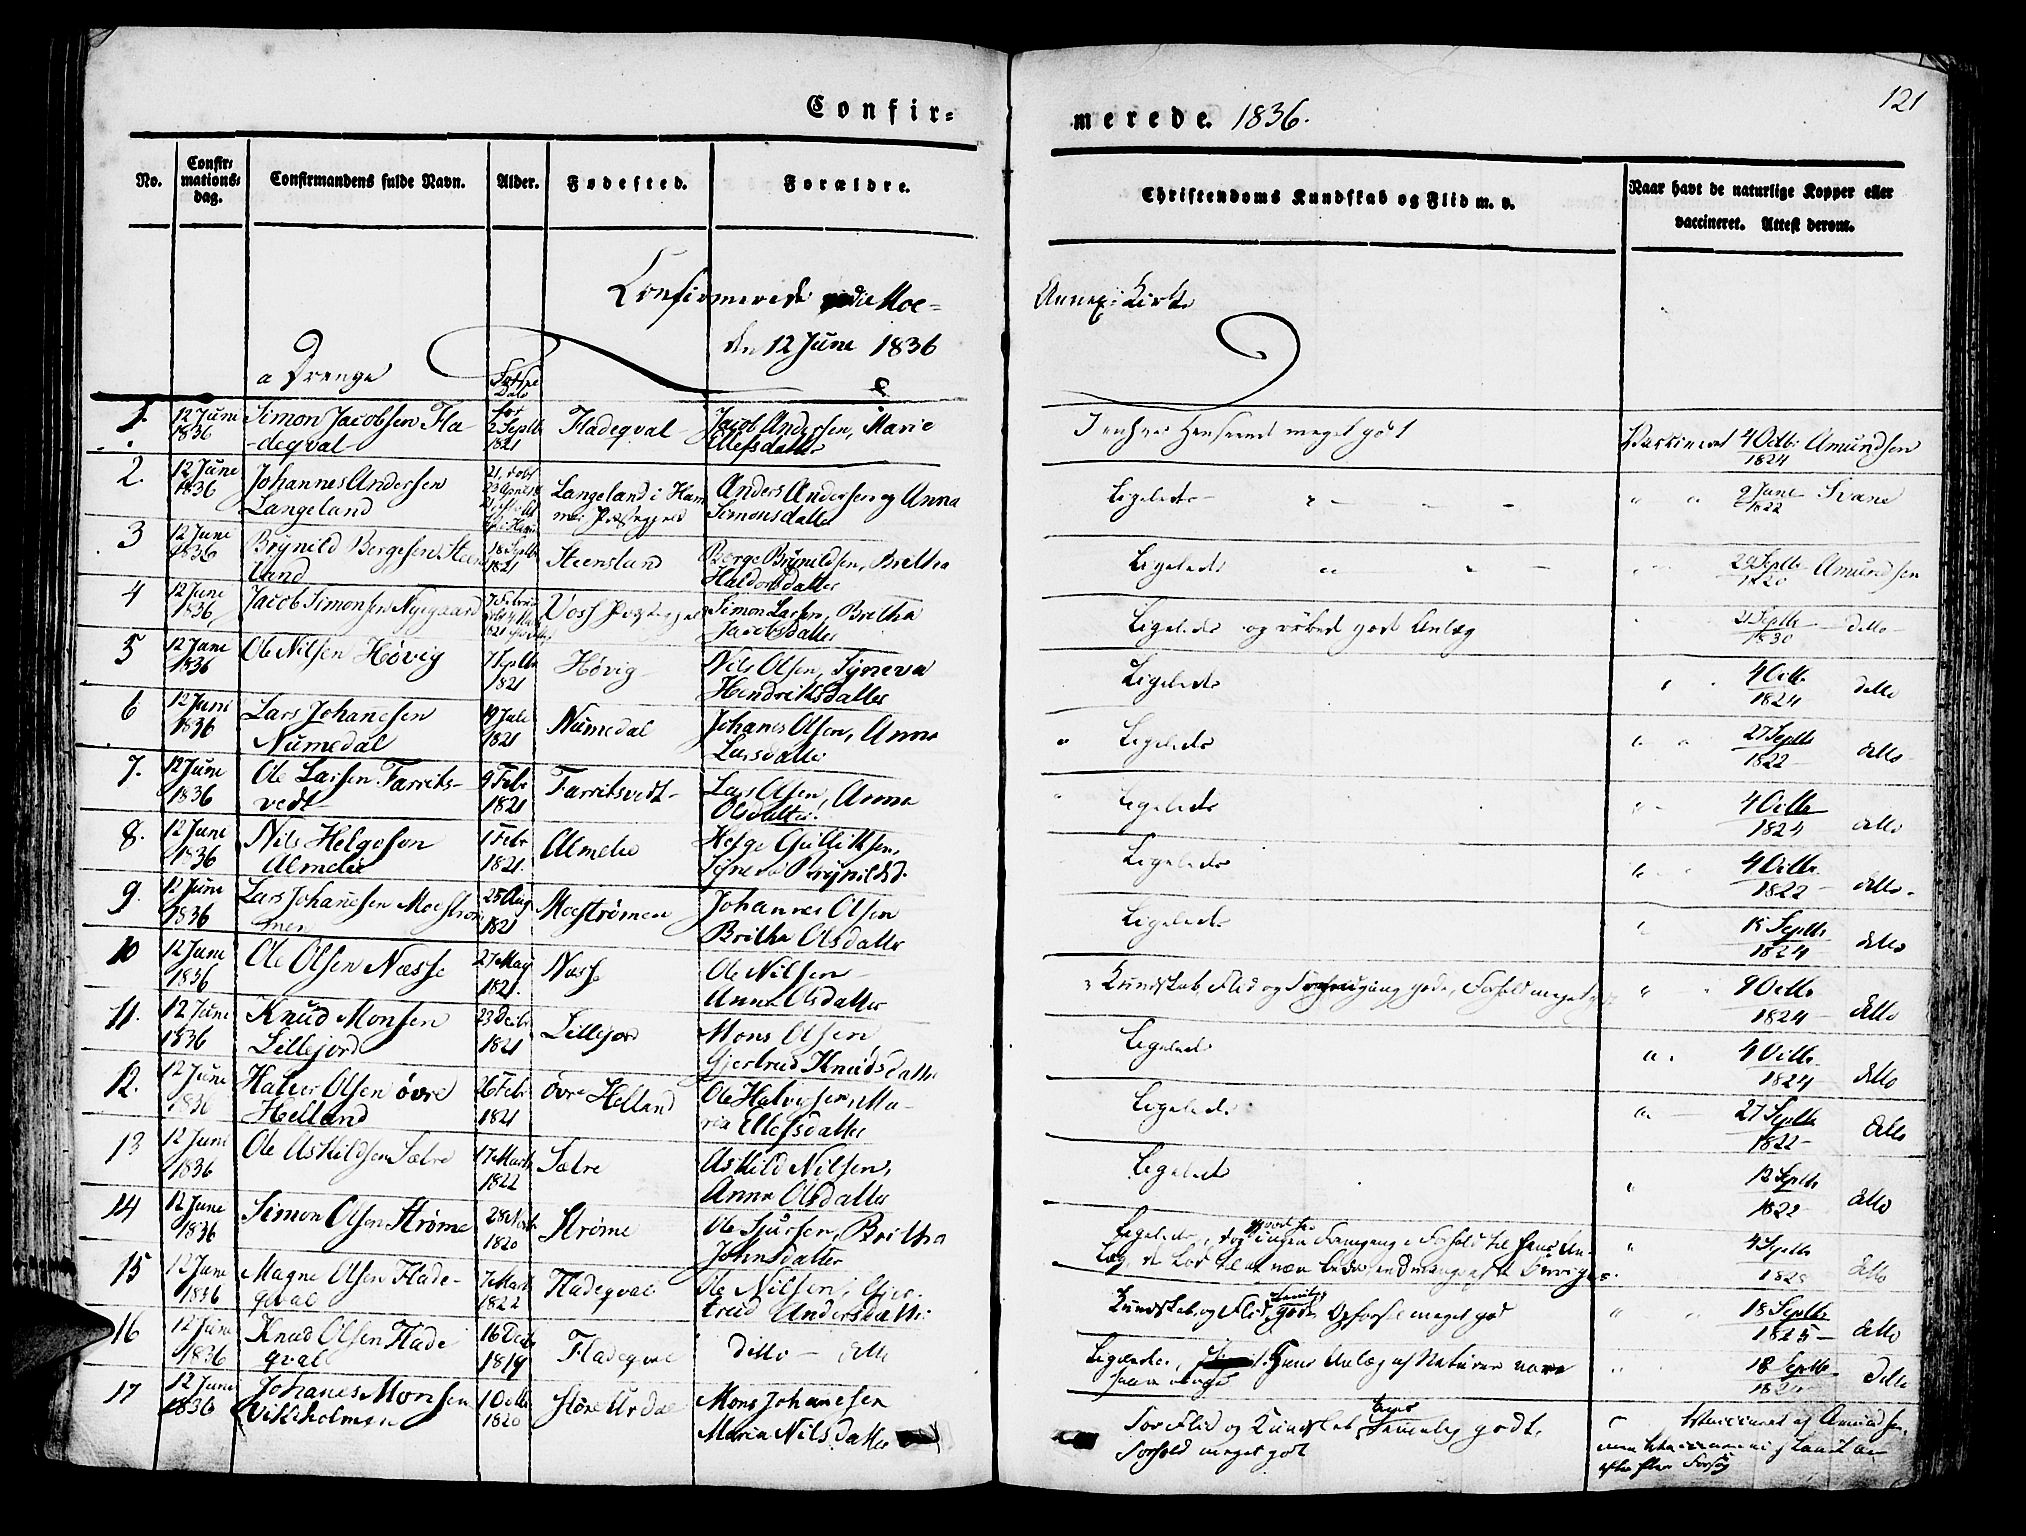 121
Confir=
merede. 1836.
No.
Confir=
mations=
dag.
Confirmandens fulde Navn.
Alder.
Fødested.
Forældre.
Christendoms Kundskab og Flid m. v.
Naar havt de naturlige Kopper eller
vaccineret. Attest derom.
Confirmerede Moe=
Annex: Kirke
den 12 June 1836
a Drenge
1. 12 June 1836 Simon Jacobsen Fla-
deqval
2 Septb 1821 Fladeqval Jacob Andersen, Marie
Ellefsdatter
meget godt
Vaccineret 4 Octb: 1824 Amundsen
2. 12 June 1836 Johannes Andersen
Langeland
Langeland i Ham
mer Præstegjeld
Anders Andersen og Anna
Simonsdatter
Ligeledes
9 June 1822 Svane
3 12 June 1836 Brynild Børgesen Steens
land
18 Septb 1821 Steensland Børge Brynildsen, Britha
Haldorsdatter
Ligeledes
Septb 1820 Amundsen
4 12 June 1836 Jacob Simonsen Nygaard
Voss Præstegjeld Simon Larsen, Britha
Jacobsdatter
Ligeledes og godt Anlæg
21 Septb 1830 detto
5 12 June 1836 Ole Nilsen Høvig
7 Septb 1821 Høvig Nils Olsen, Syneva
Hendriksdatter
Ligeledes
4 Octb 1824 detto
6 12 Juni 1836 Lars Johanesen
Numedal
19 Juli 1821 Numedal Johanes Olsen, Anna
Larsdatter
Ligeledes
27 Septb 1822 detto
7. 12 June 1836 Ole Larsen Farrits-
vedt
9 Febr 1821 Farritsvedt Lars Olsen, Anna
Olsdatter
Ligeledes
4 Octb 1824 detto
8. 12 June 1836 Nils Helgesen
Almelie
1 Febr 1821. Almelie Helge Gulliksen,
Syneva Brynildsd.
Ligeledes
4 Octbr. 1822 detto
9. 12 June 1836 Lars Johanesen Moestrøm
men
25 Aug 1821 Moestrømen Johannes Olsen
Britha Olsdatter
Ligeledes
15 Septb 1824 detto
10 12 June 1836 Ole Olsen Næsse
27 May 1821. Næsse Ole Nilsen
Anna Olsdatter
Kundskab, Flid og Fremgang gode, Forhold meget
9 Octb 1824 detto
11. 12 June 1836 Knud Monsen
Lillejord
23 Decbr 1821 Lillejord Mons Olsen
Gjertrud Knudsdatter
Ligeledes
4 Octbr. 1824 detto
12. 12 June 1836 Halvor Olsen øvre
Helland
26 Febr 1821 øvre Helland Ole Halvorsen, Ma-
ria Ellefsdatter
Ligeledes
27 Septb 1822 detto
13 12 Juni 1836 Ole Askildsen Sælre
17 Marts 1822 Sælre Askild Nilsen,
Anna Olsdatter
Ligeledes
12 Septb 1822 detto
14 12 June 1836 Simon Olsen Strøme
1820 Strøme Ole Sjursen, Britha
Johnsdatter
Ligeledes, dog ingen Fremgang i Forhold til hans An-
læg,
4 Septb detto
15 12 June 1836 Magne Olsen Flade-
qval
7 Marts 1822 Fladeqval Ole Nilsen, Gjer-
trud Andersdatter
Kundskab, og Flid, gode, Opførsel meget god
18 Septb 1825 detto
16 12 June 1836 Knud Olsen Flade
qval
16 Decb 1819 Fladeqval ditto – ditto
Ligeledes, hans Anlæg af Naturen vare
18 Septb detto
17 12 June 1836 Johanes Monsen
Vikeholmen
1 Octb 1820 Store Urdal Mons Johanesen
Maria Nilsdatter
For Flid og Kundskab temmelig godt,
Forhold meget godt
Vaccineret af Amundsen,
efter flere Forsøg